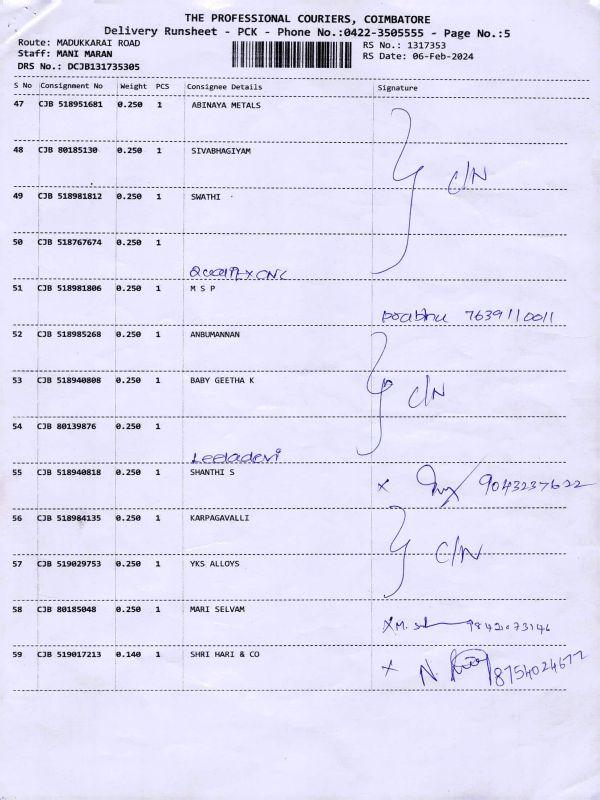 THE PROFESSIONAL COURIERS, COIMBATORE
Delivery Runsheet - PCK - Phone No.:0422-3505555 - Page No.:5
Route: MADUKKARAI ROAD
RS No.: 1317353
Staff: MANI MARAN
RS Date: 06-Feb-2024
DRS No.: DCJB131735305
S No Consignment No Weight PCS Consignee Details Signature
47 CJB 518951681 0.250 1 ABINAYA METALS
48 CJB 80185130 0.250 1 SIVABHAGIYAM
C/N
49 CJB 518981812 0.250 1 SWATHI
50 CJB 518767674 0.250 1
51 CJB 518981806 0.250 1 M S P
Prabhu 7639110011
52 CJB 518985268 0.250 1 ANBUMANNAN
53 CJB 518940808 0.250 1 BABY GEETHA K
C/N
54 CJB 80139876 0.250 1
Leeladevi
55 CJB 518940818 0.250 1 SHANTHI S
x 9043237622
56 CJB 518984135 0.250 1 KARPAGAVALLI
C/N
57 CJB 519029753 0.250 1 YKS ALLOYS
58 CJB 80185048 0.250 1 MARI SELVAM
x M. 9842073146
59 CJB 519017213 0.140 1 SHRI HARI & CO
x N. 8754024677